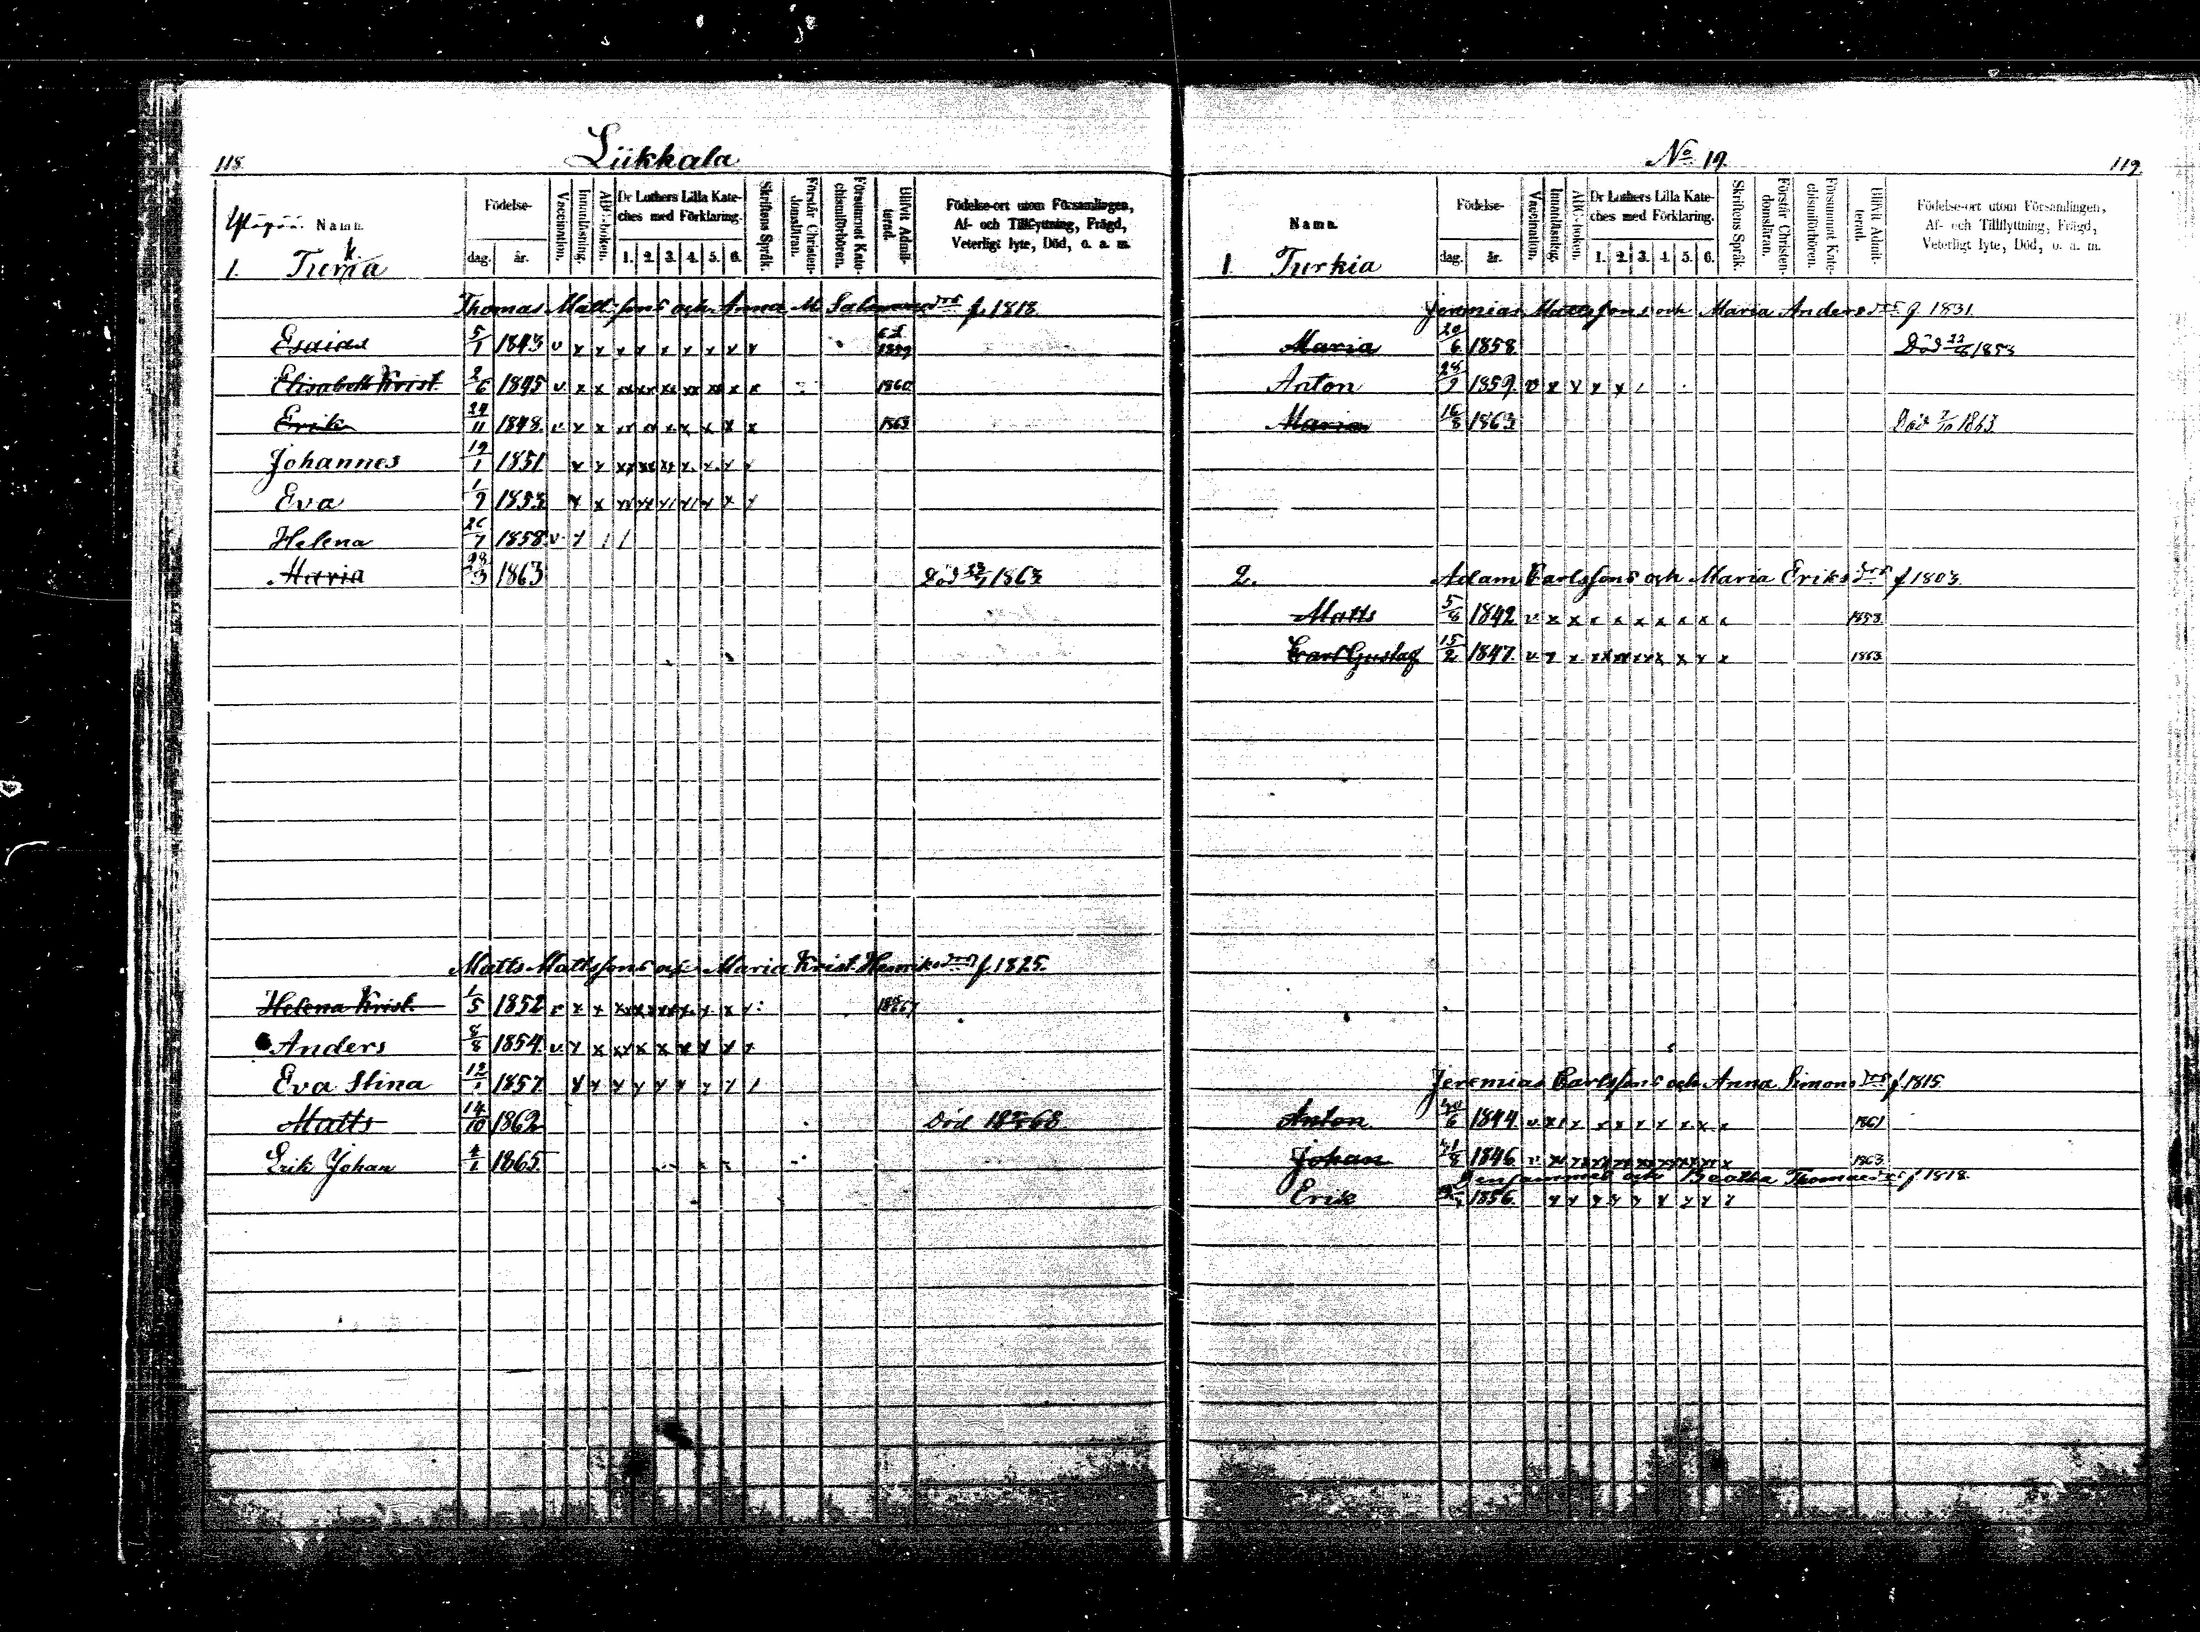 118.
Liikkala
Namn.
Födelse-
dag.
år.
Vaccination.
Innanläsning.
ABC-boken.
Dr Luthers Lilla Kate-
ches med Förklaring.
1. 2. 3. 4. 5. 6.
Skriftens Språk.
Förstår Christen-
domsläran.
Försummat Kate-
chismiförhören.
Blifvit Admit-
terad.
Födelse-ort utom Församlingen,
Af- och Tillflyttning, Frägd,
Veterligt lyte, Död, o. a. m.
1. Turkia
Thomas Mattssons och Anna M f. 1818.
Esaias 5/1 1843 v x x x x x x x x x 1859
Elisabeth Krist. 2/6 1845 v x x xx xx xx xx xx x x 1860
Erik 24/11 1848. v x x xx xx x x x x x 1863
Johannes 19/1 1851 x x xx xx xx x x x x
Eva 1/9 1853 x x xx xx x x x x x
Helena 1858 v x / /
Maria 28/3 1863 Död 1863
Matts Mattssons och Maria Krist. Henriksdr f. 1825.
Helena Krist. 1/5 1852 v x x xx xx xx x x x x 1867
Anders 8/8 1854. v x x xx x x x x x x
Eva Stina 12/1 1857 x x x x x x x x /
Matts 14/10 1862 Död 1868.
Erik Johan 4/1 1865.
No 19.
119.
Namn.
Födelse-
dag.
år.
Vaccination.
Innanläsning.
ABC-boken.
Dr Luthers Lilla Kate-
ches med Förklaring.
1. 2. 3. 4. 5. 6.
Skriftens Språk.
Förstår Christen-
domsläran.
Försummat Kate-
chismiförhören.
Blifvit Admit-
terad.
Födelse-ort utom Församlingen,
Af- och Tillflyttning, Frägd,
Veterligt lyte, Död, o. a. m.
1. Turkia
Jeremias Mattssons och Maria Andersdr f. 1831.
Maria 20/6 1858 Död 1858
Anton 28/9 1859. v x x x x /
Maria 16/8 1863 Död 7/10 1863
2. Adam Carlssons och Maria Eriksdr f 1803.
Matts 5/8 1842 v x x x x x x x x x 1858
Carl Gustaf 15/2 1847. v x x xx xx xx x x x x 1863
Jeremias Carlssons och Anna Simonsdr f 1815
Anton 1844 v x x x x x x x x x 1861
Johan 1846 v xx xx xx xx xx xx xx xx x 1863
Densammes och Beatha Thomasdr f 1818.
Erik 1856. x x x x x x x x x